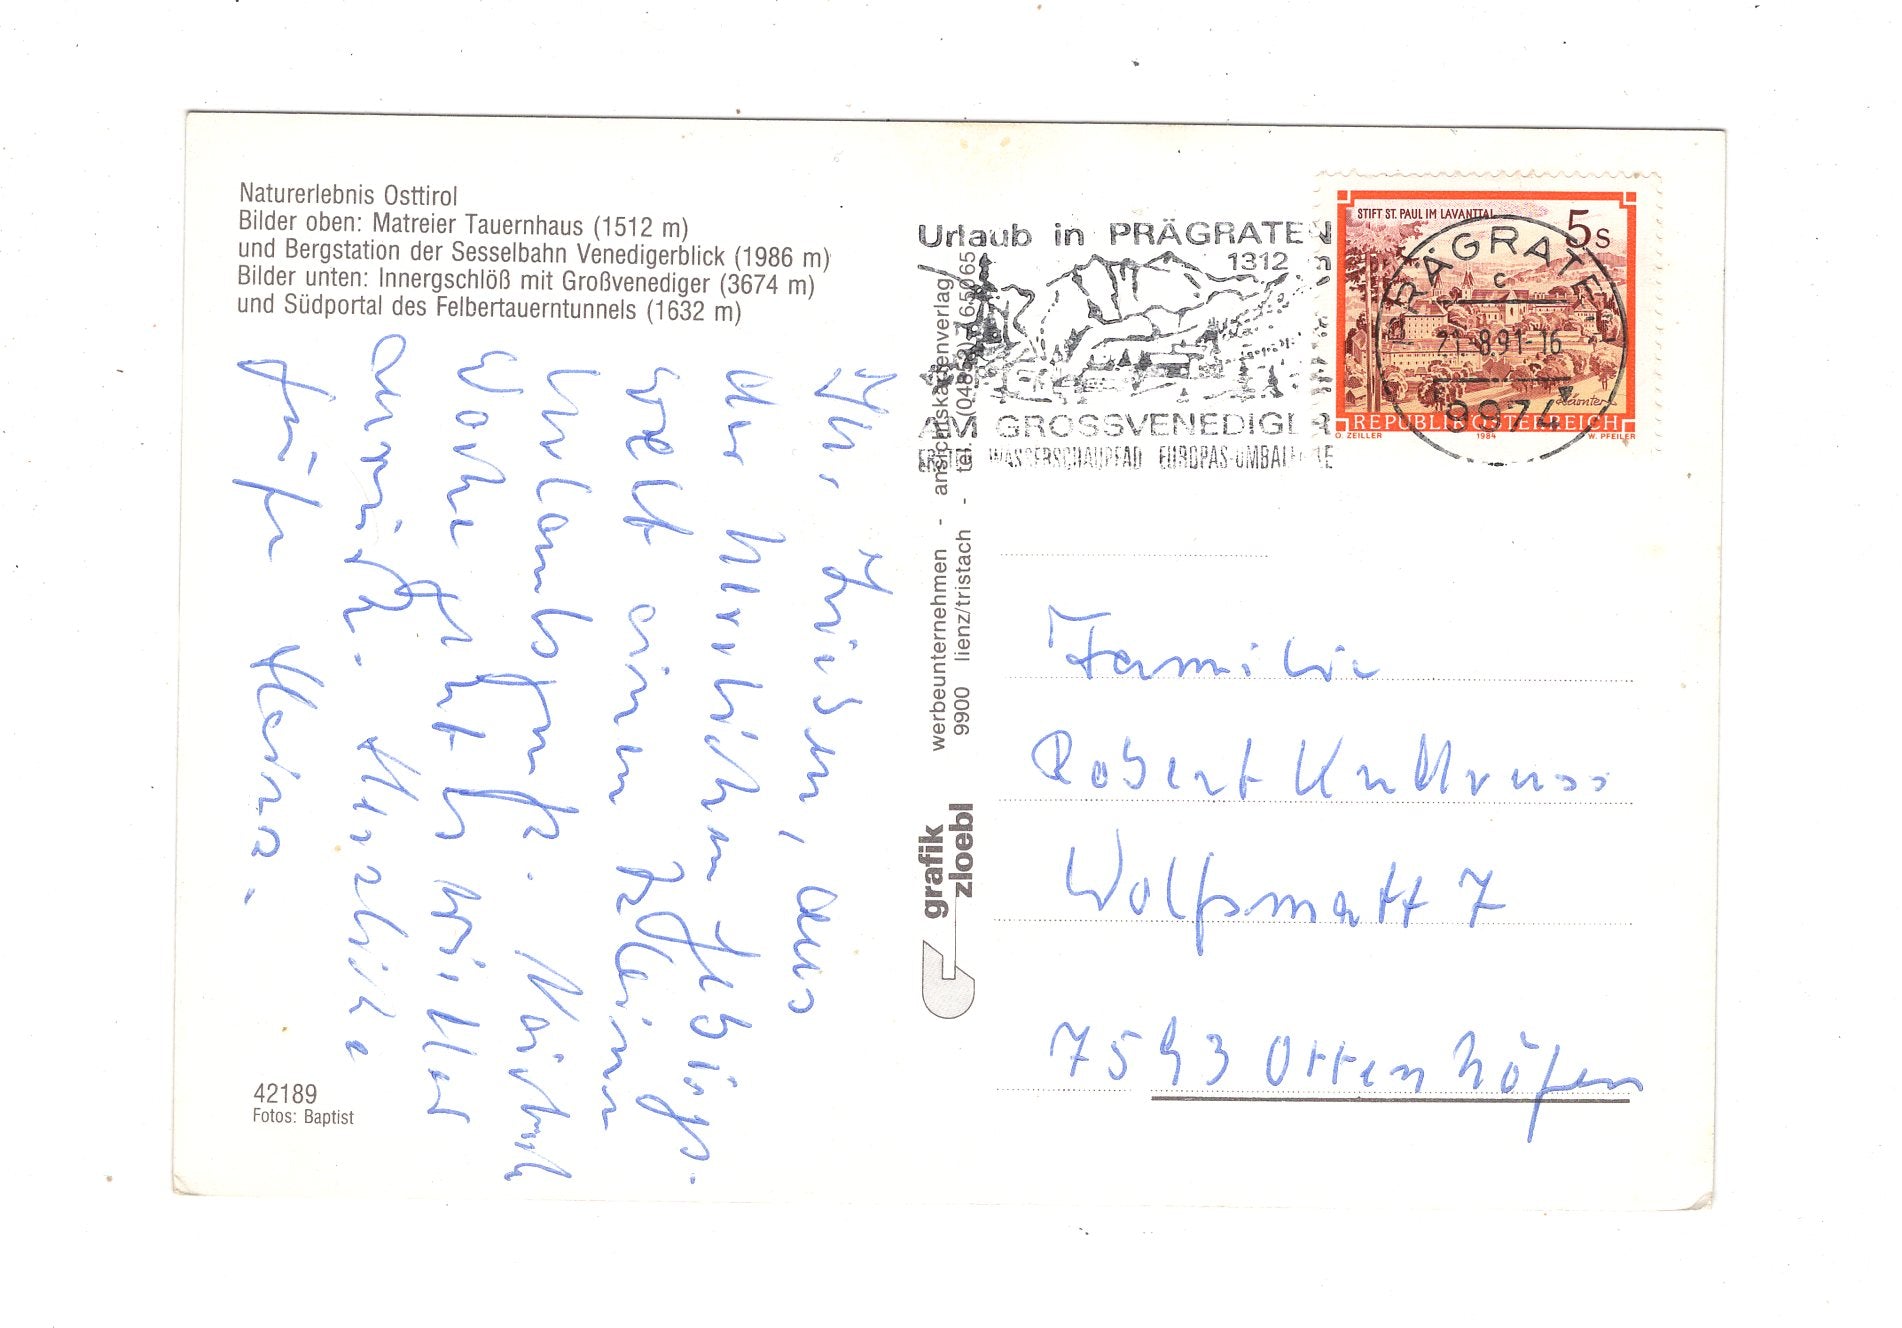 Naturerlebnis Osttirol
Bilder oben: Matreier Tauernhaus (1512 m)
und Bergstation der Sesselbahn Venedigerblick (1986 m)
Bilder unten: Innergschlöß mit Großvenediger (3674 m)
und Südportal des Felbertauerntunnels (1632 m)
Ihr Lieben, aus
der herrlichen Gebirgs-
welt einen kleinen
Urlaubsgruß. Nächste
Woche geht es wieder
Herzliche
Grüße
42189
Fotos: Baptist
grafik
zloebl
werbeunternehmen - ansichtskartenverlag
9900 lienz/tristach - tel. (04852) 65065
Urlaub in PRÄGRATEN
1312
AM GROSSVENEDIGER
WASSERSCHAUPFAD
STIFT ST. PAUL IM LAVANTTAL
5s
REPUBLIK ÖSTERREICH
O. ZEILLER 1984 W. PFEILER
PRÄGRATEN
c
21.-8.91-16
9974
Familie
Robert
Wolfsmatt 7
7593 Ottenhöfen